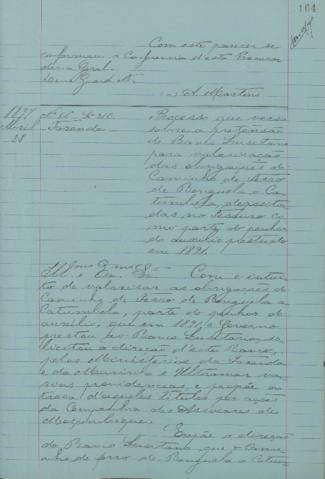 164
Com este parecer se
conformou a Conferencia d'esta Procura
doria Geral.
Deus Guarde V.
(a) A. Martins
1897
Abril
28
Nº 86 - Lº 210
Fazenda
Processo que versa
sobre a pretensão
do Banco Lusitano
para valorisação
das obrigações do
Caminho de Ferro
de Benguella a Ca-
tumbella, deposita-
das no Thesouro co-
mo parte do penhor
do auxilio prestado
em 1891.
Illmo e Exmo Sr. Com o intui-
to de valorisar as obrigações do
Caminho de Ferro de Benguella a
Catumbella, parte do penhor do
auxilio, que em 1891 o Governo
prestou ao Banco Lusitano, so-
licitou a direcção d'este Banco,
pelos Ministerios da Fazenda
e da Marinha e Ultramar va-
rias providencias, e propõe a
troca d'aquelles titulos por acções
da Companhia do Assucar de
Moçambique.
Expõe a direcção
do Banco Lusitano que o Cami-
nho de ferro de Benguella a Catum-